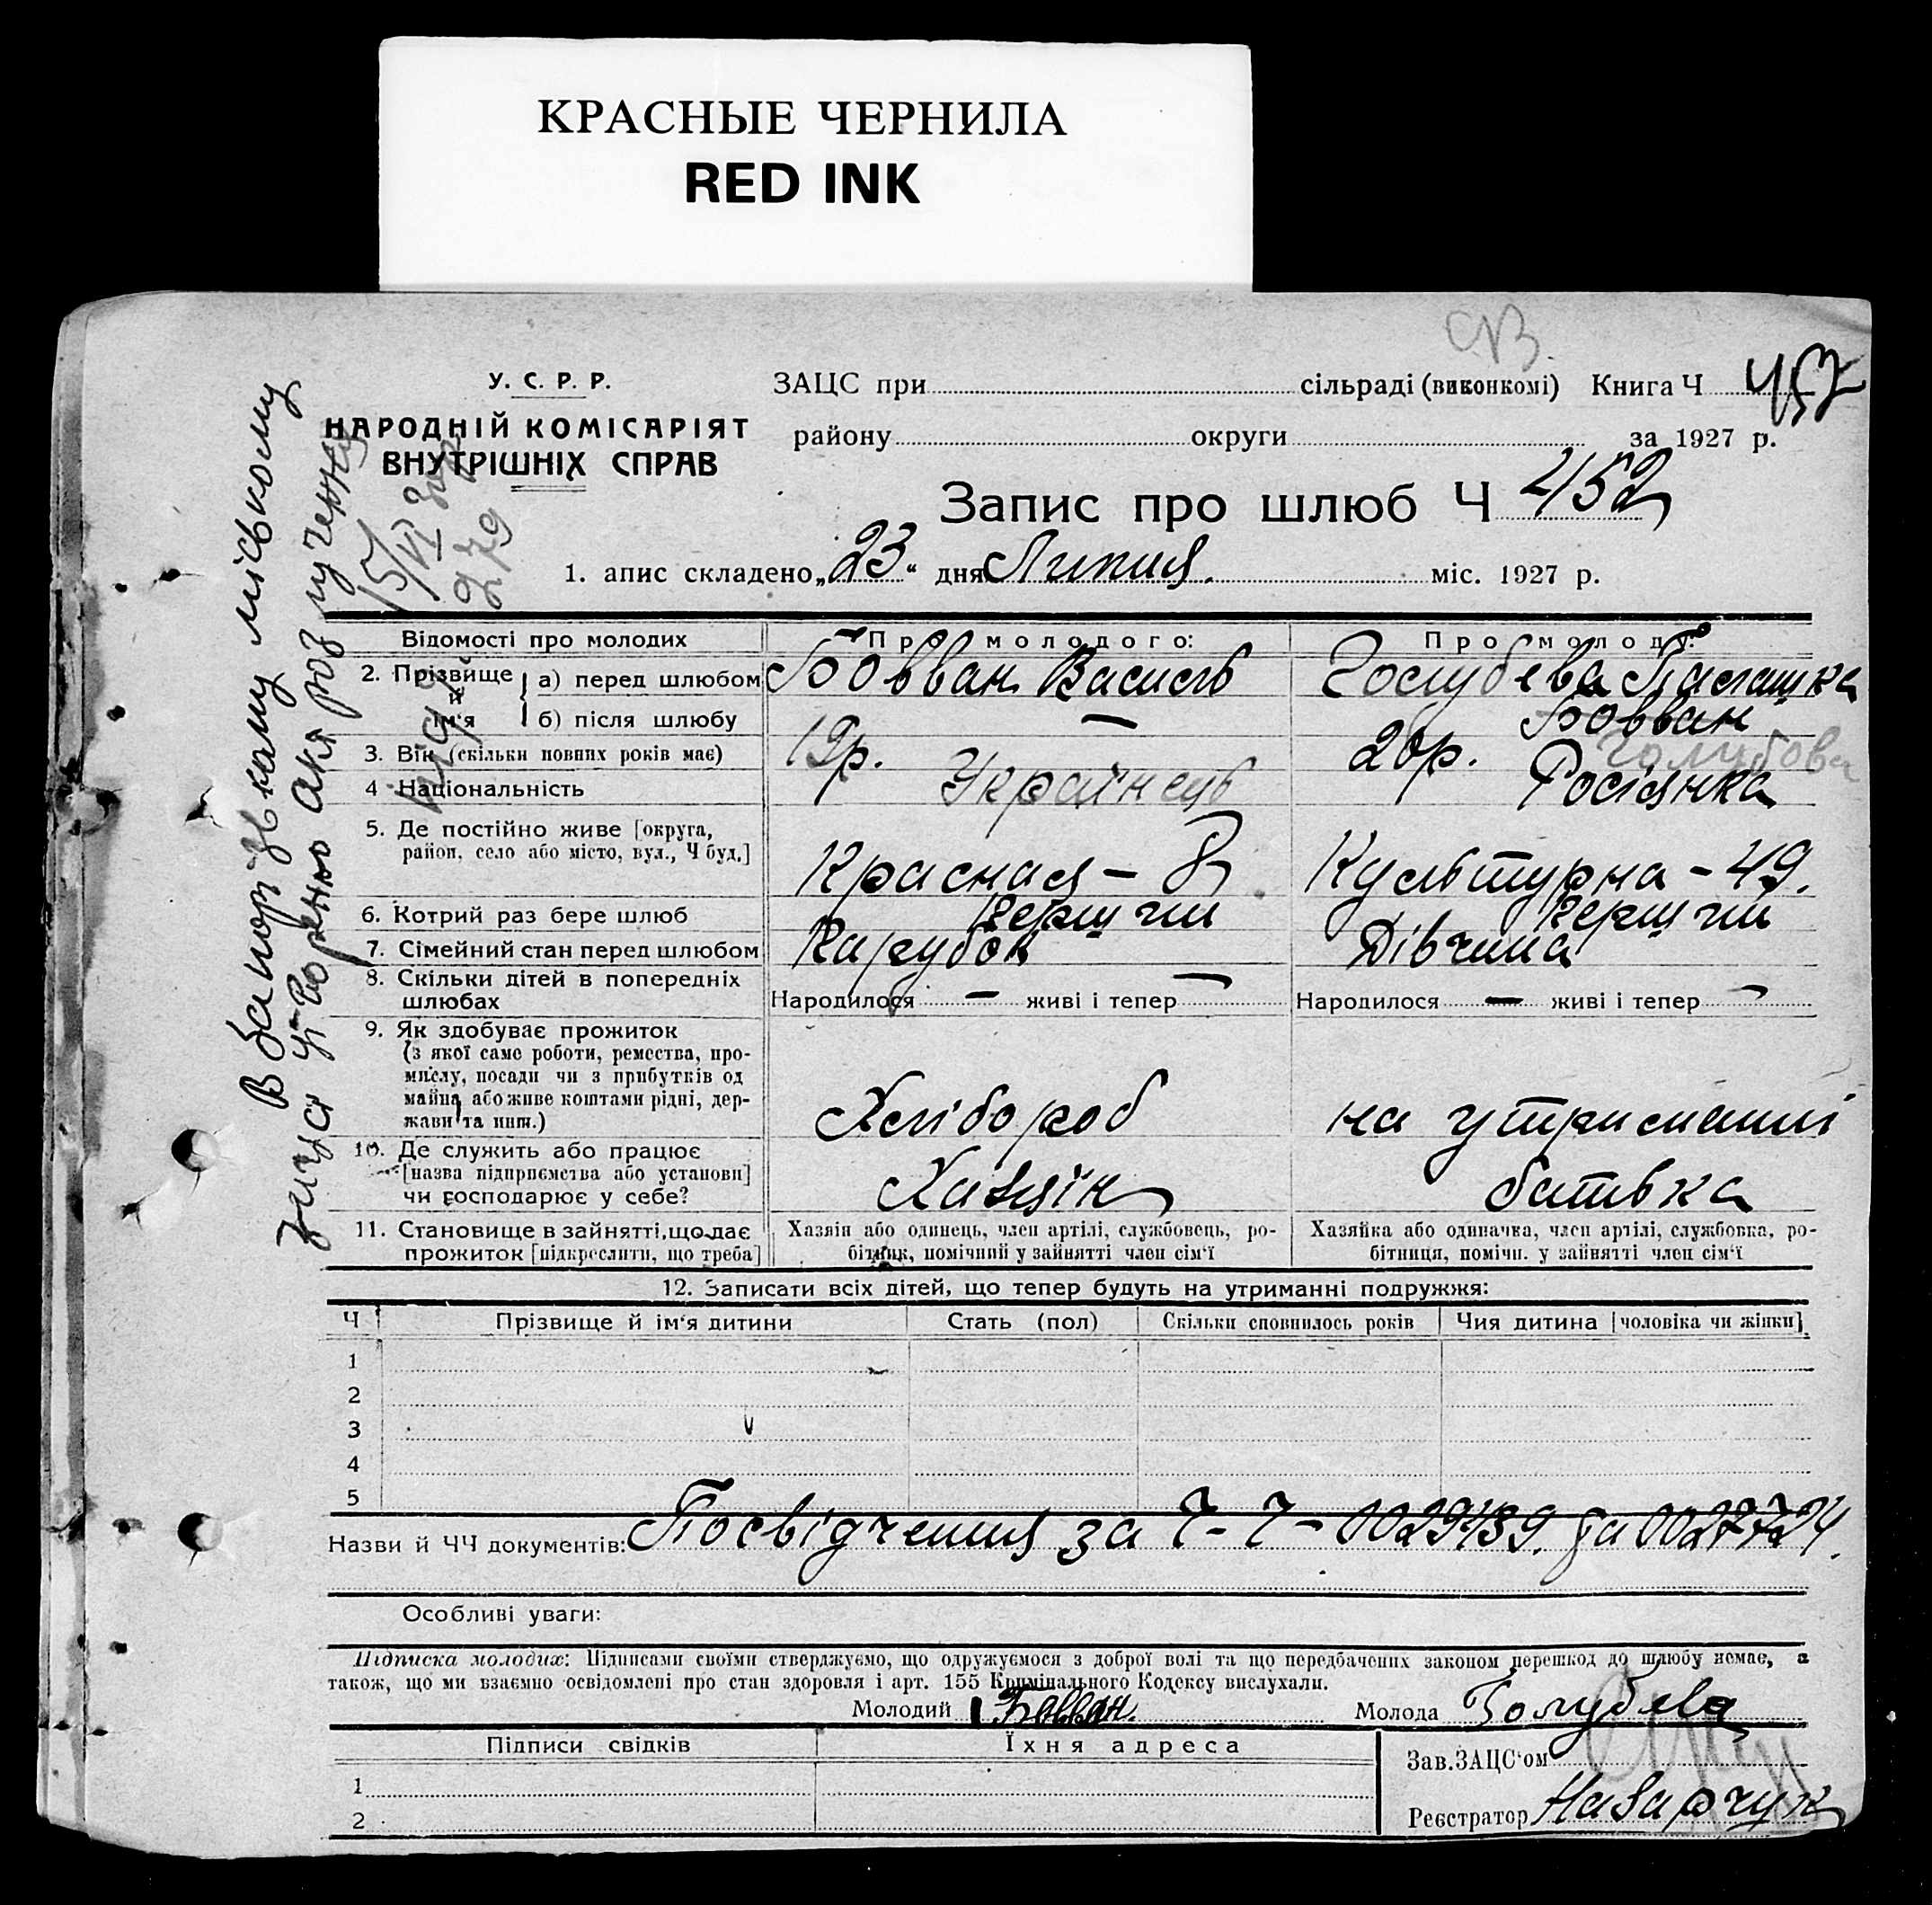 КРАСНЫЕ ЧЕРНИЛА
RED INK
У. С. Р. Р.
НАРОДНІЙ КОМІСАРІЯТ
ВНУТРІШНІХ СПРАВ
ЗАЦС при сільраді (виконкомі) Книга Ч
району округи за 1927 р.
Запис про шлюб Ч 452
1. апис складено „23“ дня Липня міс. 1927 р.
В Запорізькому міському
загсі утворено акт розлучення
15/VI 30р
279
Відомості про молодих
Про молодого:
Про молоду:
2. Прізвище й ім'я
а) перед шлюбом
Бовван Василь
Голубева Палашка
б) після шлюбу
—
Бовван
Голубова
3. Вік (скільки повних років має)
19р.
20р.
4 Національність
Українець
Росіянка
5. Де постійно живе [округа,
район, село або місто, вул., Ч буд.]
Красная – 8
Культурна – 49.
6. Котрий раз бере шлюб
Перший
Перший
7. Сімейний стан перед шлюбом
Парубок
Дівчина
8. Скільки дітей в попередніх
шлюбах
Народилося — живі і тепер —
Народилося — живі і тепер —
9. Як здобуває прожиток
(з якої саме роботи, ремества, про-
мислу, посади чи з прибутків од
майна, або живе коштами рідні, дер-
жави та инш.)
Хлібороб
на утриманні
10. Де служить або працює
[назва підприємства або установи]
чи господарює у себе?
Хазяїн
батька
11. Становище в зайнятті, що дає
прожиток [підкреслити, що треба]
Хазяїн або одинець, член артілі, службовець, ро-
бітник, помічний у зайнятті член сім'ї
Хазяйка або одиначка, член артілі, службовка, ро-
бітниця, помічн. у зайнятті член сім'ї
12. Записати всіх дітей, що тепер будуть на утриманні подружжя:
Ч Прізвище й ім'я дитини Стать (пол) Скільки сповнилось років Чия дитина [чоловіка чи жінки]
1
2
3
4
5
Назви й ЧЧ документів: Посвідчення за Ч-Ч- 0029439. За 0027724.
Особливі уваги:
Підписка молодих: Підписами своїми стверджуємо, що одружуємося з доброї волі та що передбачених законом перешкод до шлюбу немає, а
також, що ми взаємно освідомлені про стан здоровля і арт. 155 Кримінального Кодексу вислухали.
Молодий Бовван.
Молода Голубева
Підписи свідків Їхня адреса
1
2
Зав.ЗАЦС'ом
Реєстратор Назарчук